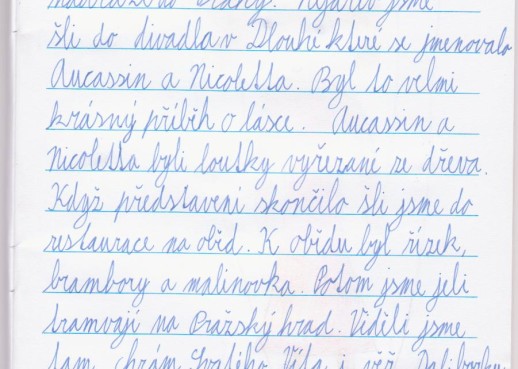 nádraží do Prahy. Nejdřív jsme
šli do divadla v Dlouhé které se jmenovalo
Aucassin a Nicoletta. Byl to velmi
krásný příběh o lásce. Aucassin a
Nicoletta byli loutky vyřezané ze dřeva.
Když představení skončilo šli jsme do
restaurace na oběd. K obědu byl řízek,
brambory a malinovka. Potom jsme jeli
tramvají na Pražský hrad. Viděli jsme
tam chrám Svatého Víta i věž Daliborku